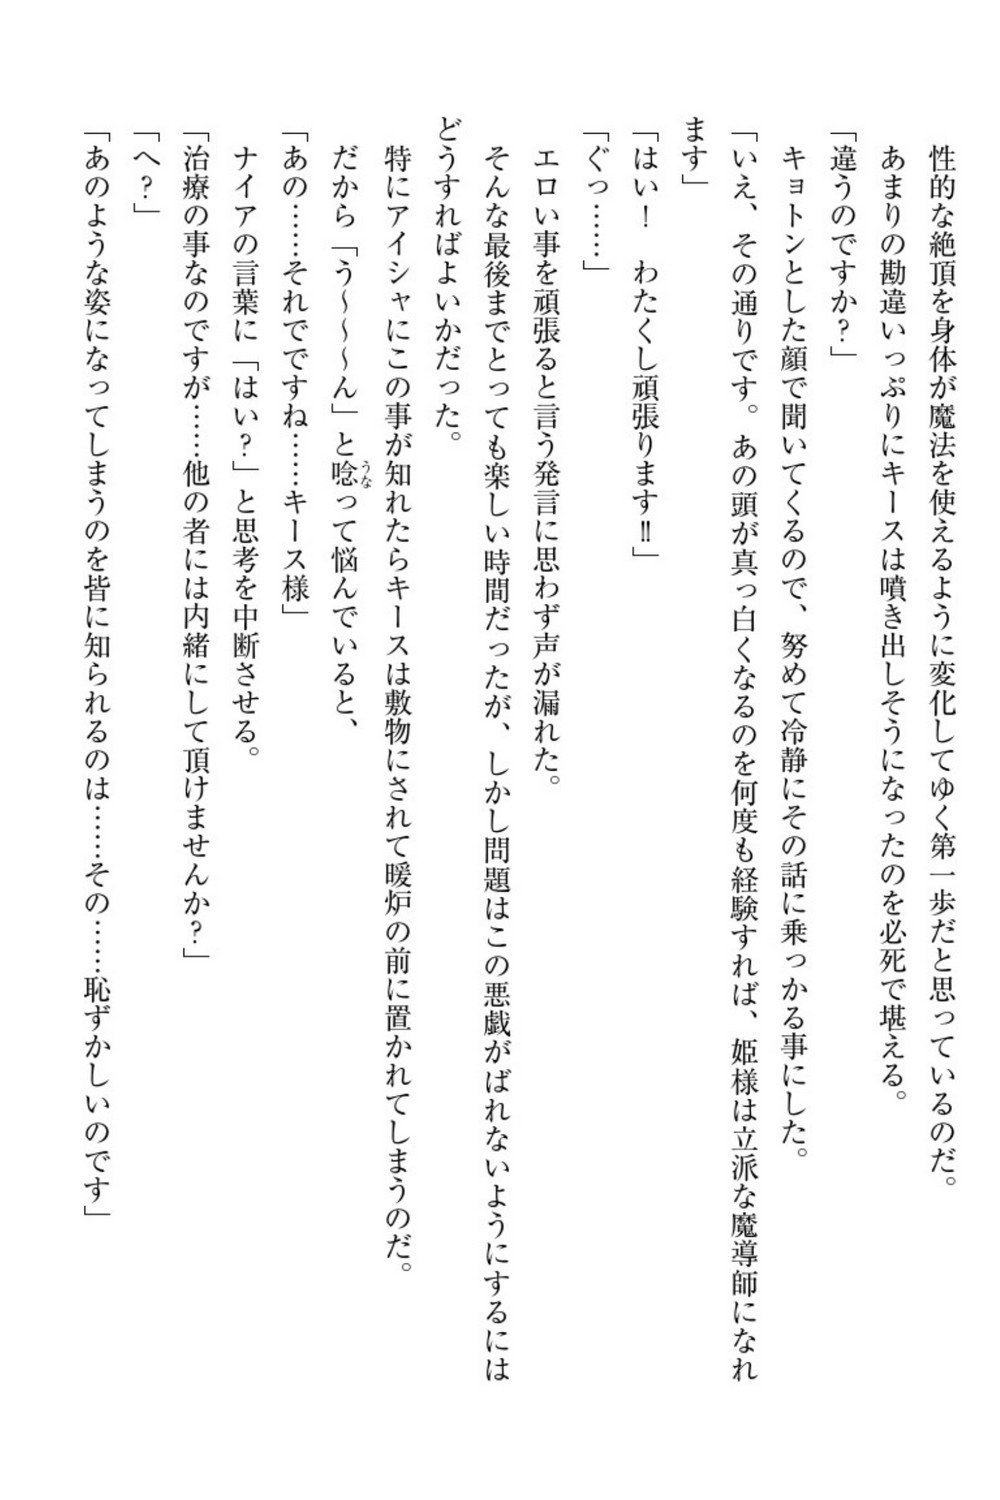 性的な絶頂を身体が魔法を使えるように変化してゆく第一歩だと思っているのだ。
あまりの勘違いっぷりにキースは噴き出しそうになったのを必死で堪える。
「違うのですか?」
キョトンとした顔で聞いてくるので、努めて冷静にその話に乗っかる事にした。
「いえ、その通りです。あの頭が真っ白くなるのを何度も経験すれば、姫様は立派な魔導師になれ
ます」
「はい! わたくし頑張ります‼」
「ぐっ……」
エロい事を頑張ると言う発言に思わず声が漏れた。
そんな最後までとっても楽しい時間だったが、しかし問題はこの悪戯がばれないようにするには
どうすればよいかだった。
特にアイシャにこの事が知れたらキースは敷物にされて暖炉の前に置かれてしまうのだ。
だから「う〜〜〜ん」と唸うなって悩んでいると、
「あの……それでですね……キース様」
ナイアの言葉に「はい?」と思考を中断させる。
「治療の事なのですが……他の者には内緒にして頂けませんか?」
「へ?」
「あのような姿になってしまうのを皆に知られるのは……その……恥ずかしいのです」